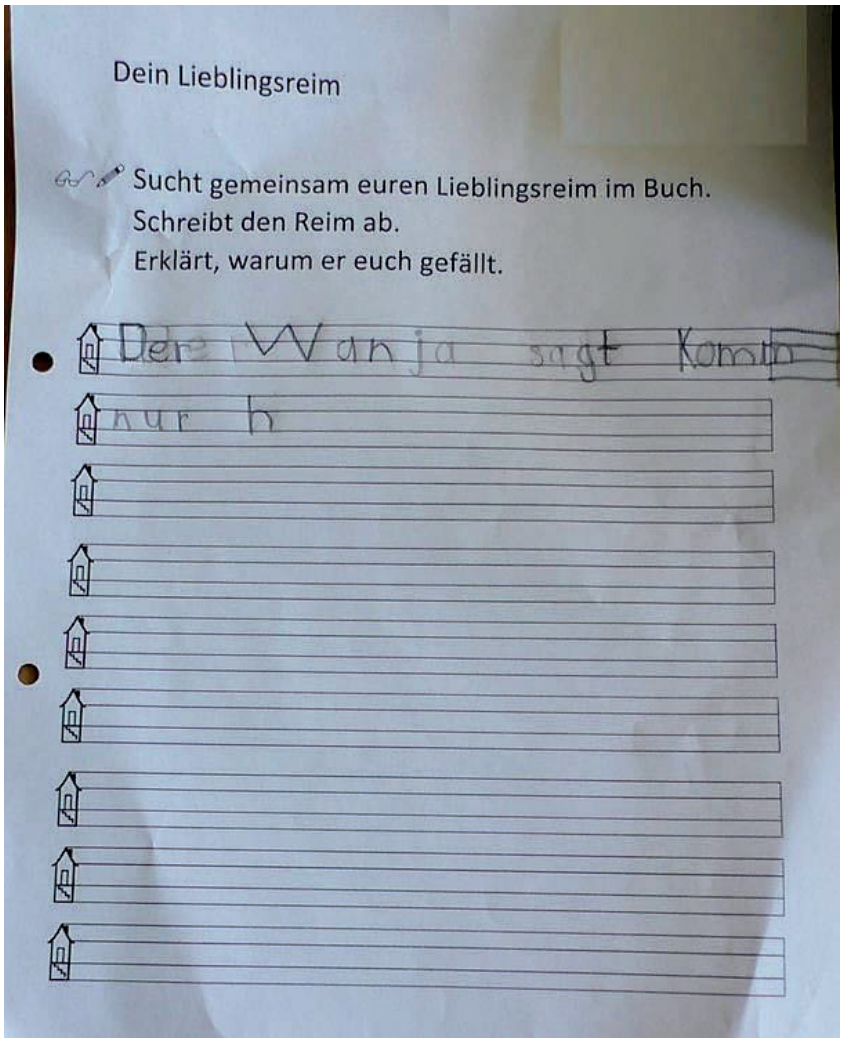 Dein Lieblingsreim
Sucht gemeinsam euren Lieblingsreim im Buch.
Schreibt den Reim ab.
Erklärt, warum er euch gefällt.
Der Wanja sagt Komm
nur h